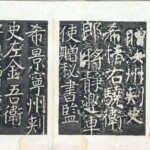 贈汝州刺史
希倩右驍衛
郎將詵運軍
使贈秘書監
希景寧州刺
史左金吾衛